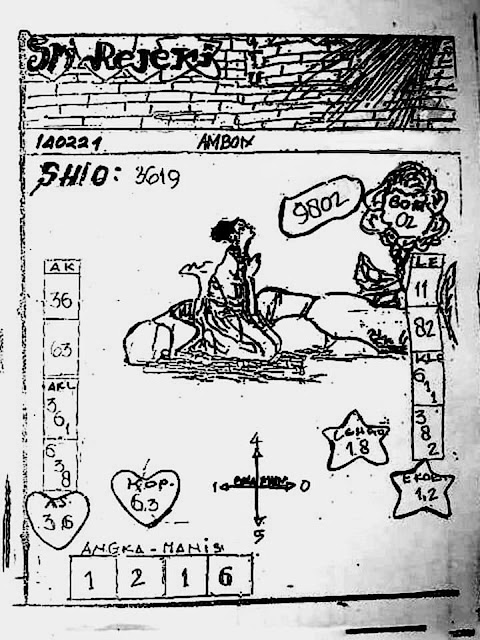 Sri Rejeki
140221 AMBON
SHIO: 3619
9802
BOM
02
AK
36
63
AKL
3
6
1
6
3
8
AS.
3,6
KOP.
6.3
4
1
0
5
LE
11
82
KLE
6
1
1
3
8
2
1.8
EKOR
1,2
ANGKA-MANIS
1 2 1 6